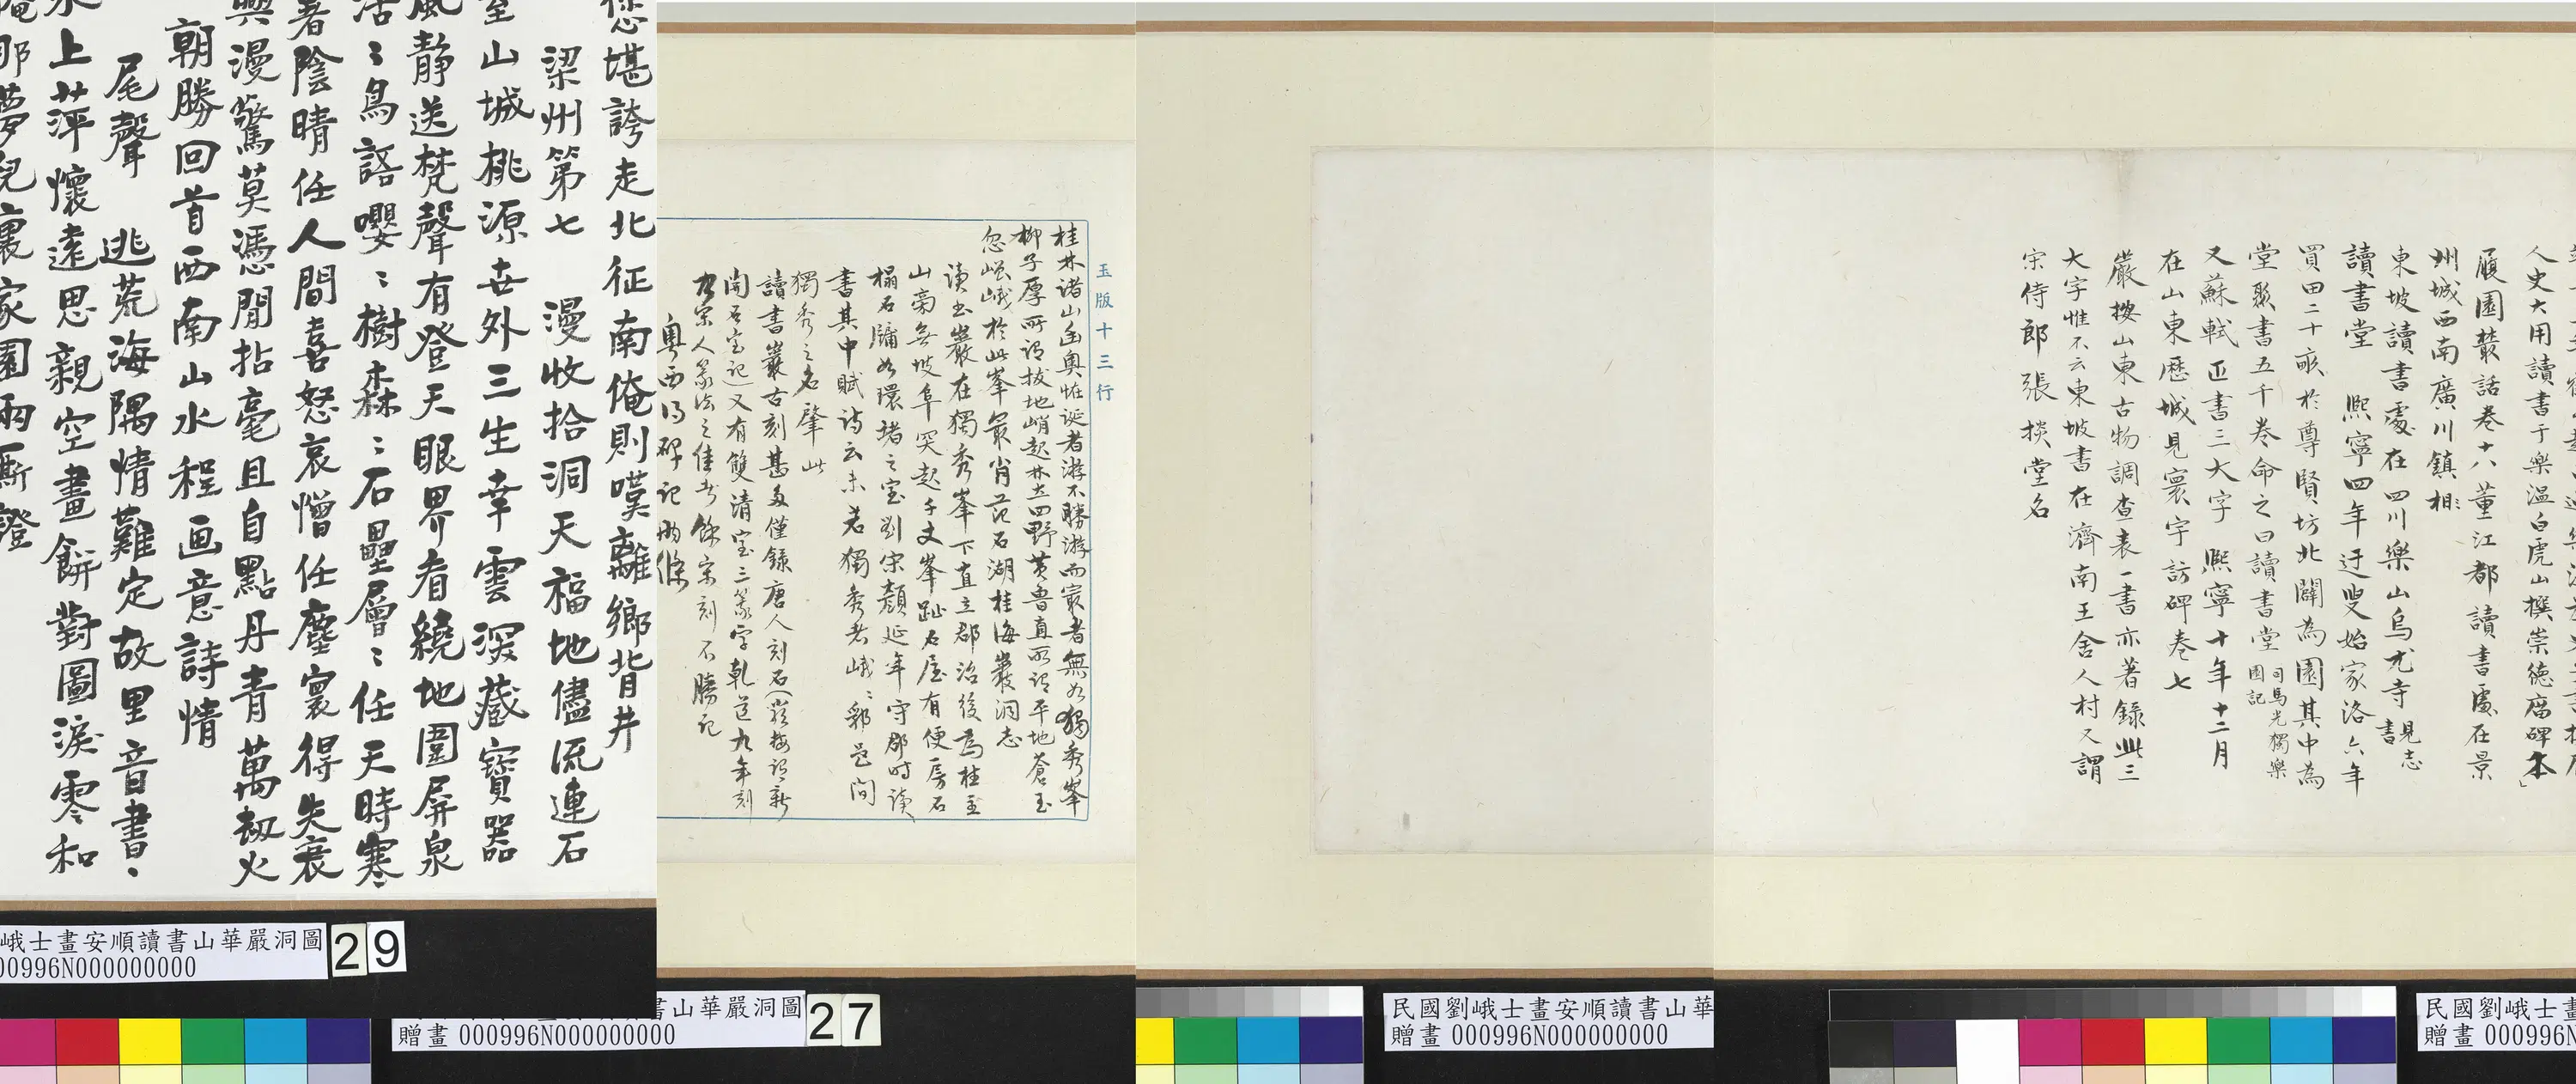 人史大用讀書于樂溫白虎山撰崇德庿碑本」
履園叢話卷十八董江都讀書處在景
州城西南廣川鎮相
東坡讀書處在四川樂山烏尤寺見志書
讀書堂 熙寧四年迂叟始家洛六年
買田二十畝於尊賢坊北闢為園其中為
堂聚書五千卷命之曰讀書堂司馬光獨樂園記
又蘇軾正書三大字 熙寧十年十二月
在山東歷城見寰宇訪碑卷七
嚴按山東古物調查表一書亦著錄此三
大字惟不云東坡書在濟南王舍人村又謂
宋侍郎張掞堂名
玉版十三行
桂林諸山幽奧恠誕者游不勝游而最者無如獨秀峯
柳子厚所謂拔地峭起林立四野黃魯直所謂平地蒼玉
忽嵯峨於此峯最肖范石湖桂海巖洞志
讀書巖在獨秀峯下直立郡治後為桂主
山旁無坡阜突起千丈峯趾石屋有便房石
榻石牖如環堵之室劉宋顏延年守郡時讀
書其中賦詩云未若獨秀者峨〻郛邑間
獨秀之名肇此
讀書巖古刻甚多僅錄唐人刻石
開石室記又有雙清室三篆字乾道九年刻
宋人篆法之佳者餘宋刻不勝記
粵西得碑記兩條
您堪誇走北征南俺則嘆離鄉背井
梁州第七 漫收拾洞天福地儘流連石
室山城桃源世外三生幸雲深藏寶器
風靜送梵聲有登天眼界看繞地圍屏泉
活〻鳥語嚶〻樹森〻石壘層〻任天時寒
暑陰晴任人間喜怒哀憎任塵寰得失衰
興漫驚莫憑閒拈毫且自點丹青萬劫火
朝勝回首西南山水程画意詩情
尾聲 逃荒海隅情難定故里音書、
水上萍懷遠思親空畫餅對圖淚零和
俺那夢兒裏家園兩廝證
峨士畫安順讀書山華嚴洞圖
00996N000000000
29
書山華嚴洞圖
贈畫 000996N000000000
27
民國劉峨士畫安順讀書山華
贈畫 000996N000000000
民國劉峨士畫
贈畫 000996N